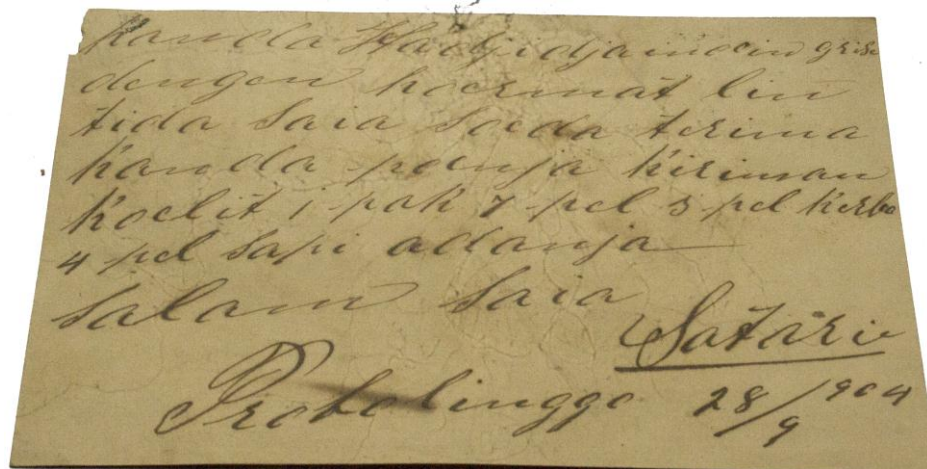 Kanda Hadjidjamoein grise
dengen hoermat lin
tida saia soeda trima
kanda poenja kiriman
koelit 1 pak 7 pel 3 pel kerbo
4 pel sapi adanja
salam saia
Satarie
Probolinggo 28/9 904